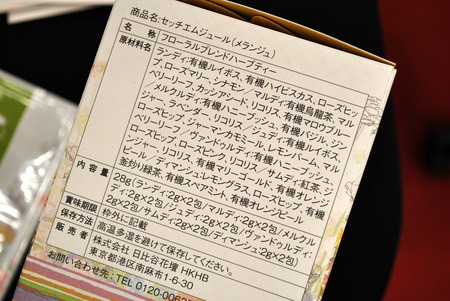 商品名:セッチエムジュール(メランジュ)
名称 フローラルブレンドハーブティー
原材料名 ランディ:有機ルイボス、有機ハイビスカス、ローズヒップ、ローズマリー、シナモン/マルディ:有機烏龍茶、マルベリーリーフ、カッシアシード、リコリス、有機マロウブルー/メルクルディ:有機ハニーブッシュ、有機バジル、ジンジャー、ラベンダー、リコリス/ジュディ:有機ルイボス、ローズヒップ、ジャーマンカモミール、レモンバーム、マルベリーリーフ/ヴァンドゥルディ:有機ハニーブッシュ、
ローズヒップ、ローズピンク、リコリス/サムディ:紅茶、
ジンジャー、リコリス、有機マリーゴールド、有機オレンジ
ピール/ディマンシュ:レモングラス、ローズヒップ、有機
釜炒り緑茶、有機スペアミント、有機オレンジピール
内容量 28g(ランディ:2g×2包/マルディ:2g×2包/メルクル
ディ:2g×2包/ジュディ:2g×2包/ヴァンドゥルディ:
2g×2包/サムディ:2g×2包/ディマンシュ:2g×2包)
賞味期限 枠外に記載
保存方法 高温多湿を避けて保存してください。
販売者 株式会社 日比谷花壇 HKHB
東京都港区南麻布1-6-30
お問い合わせ先:TEL 0120-00